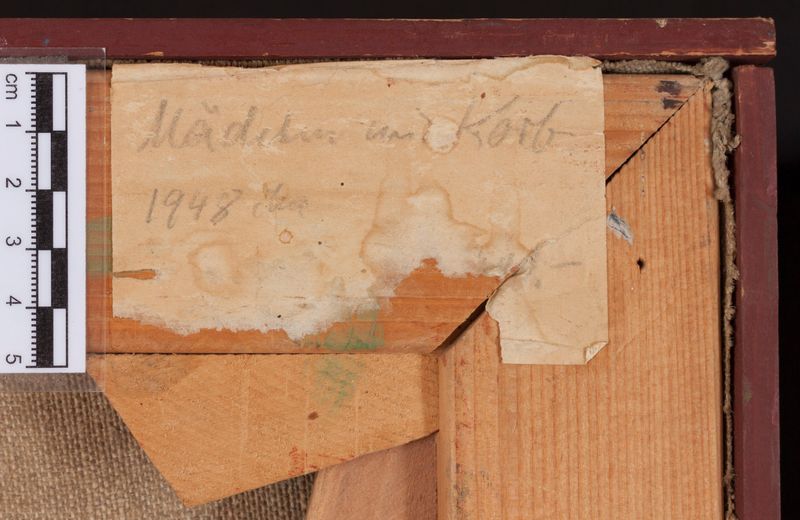 Mädchen mit Korb
1948
cm
1
2
3
4
5